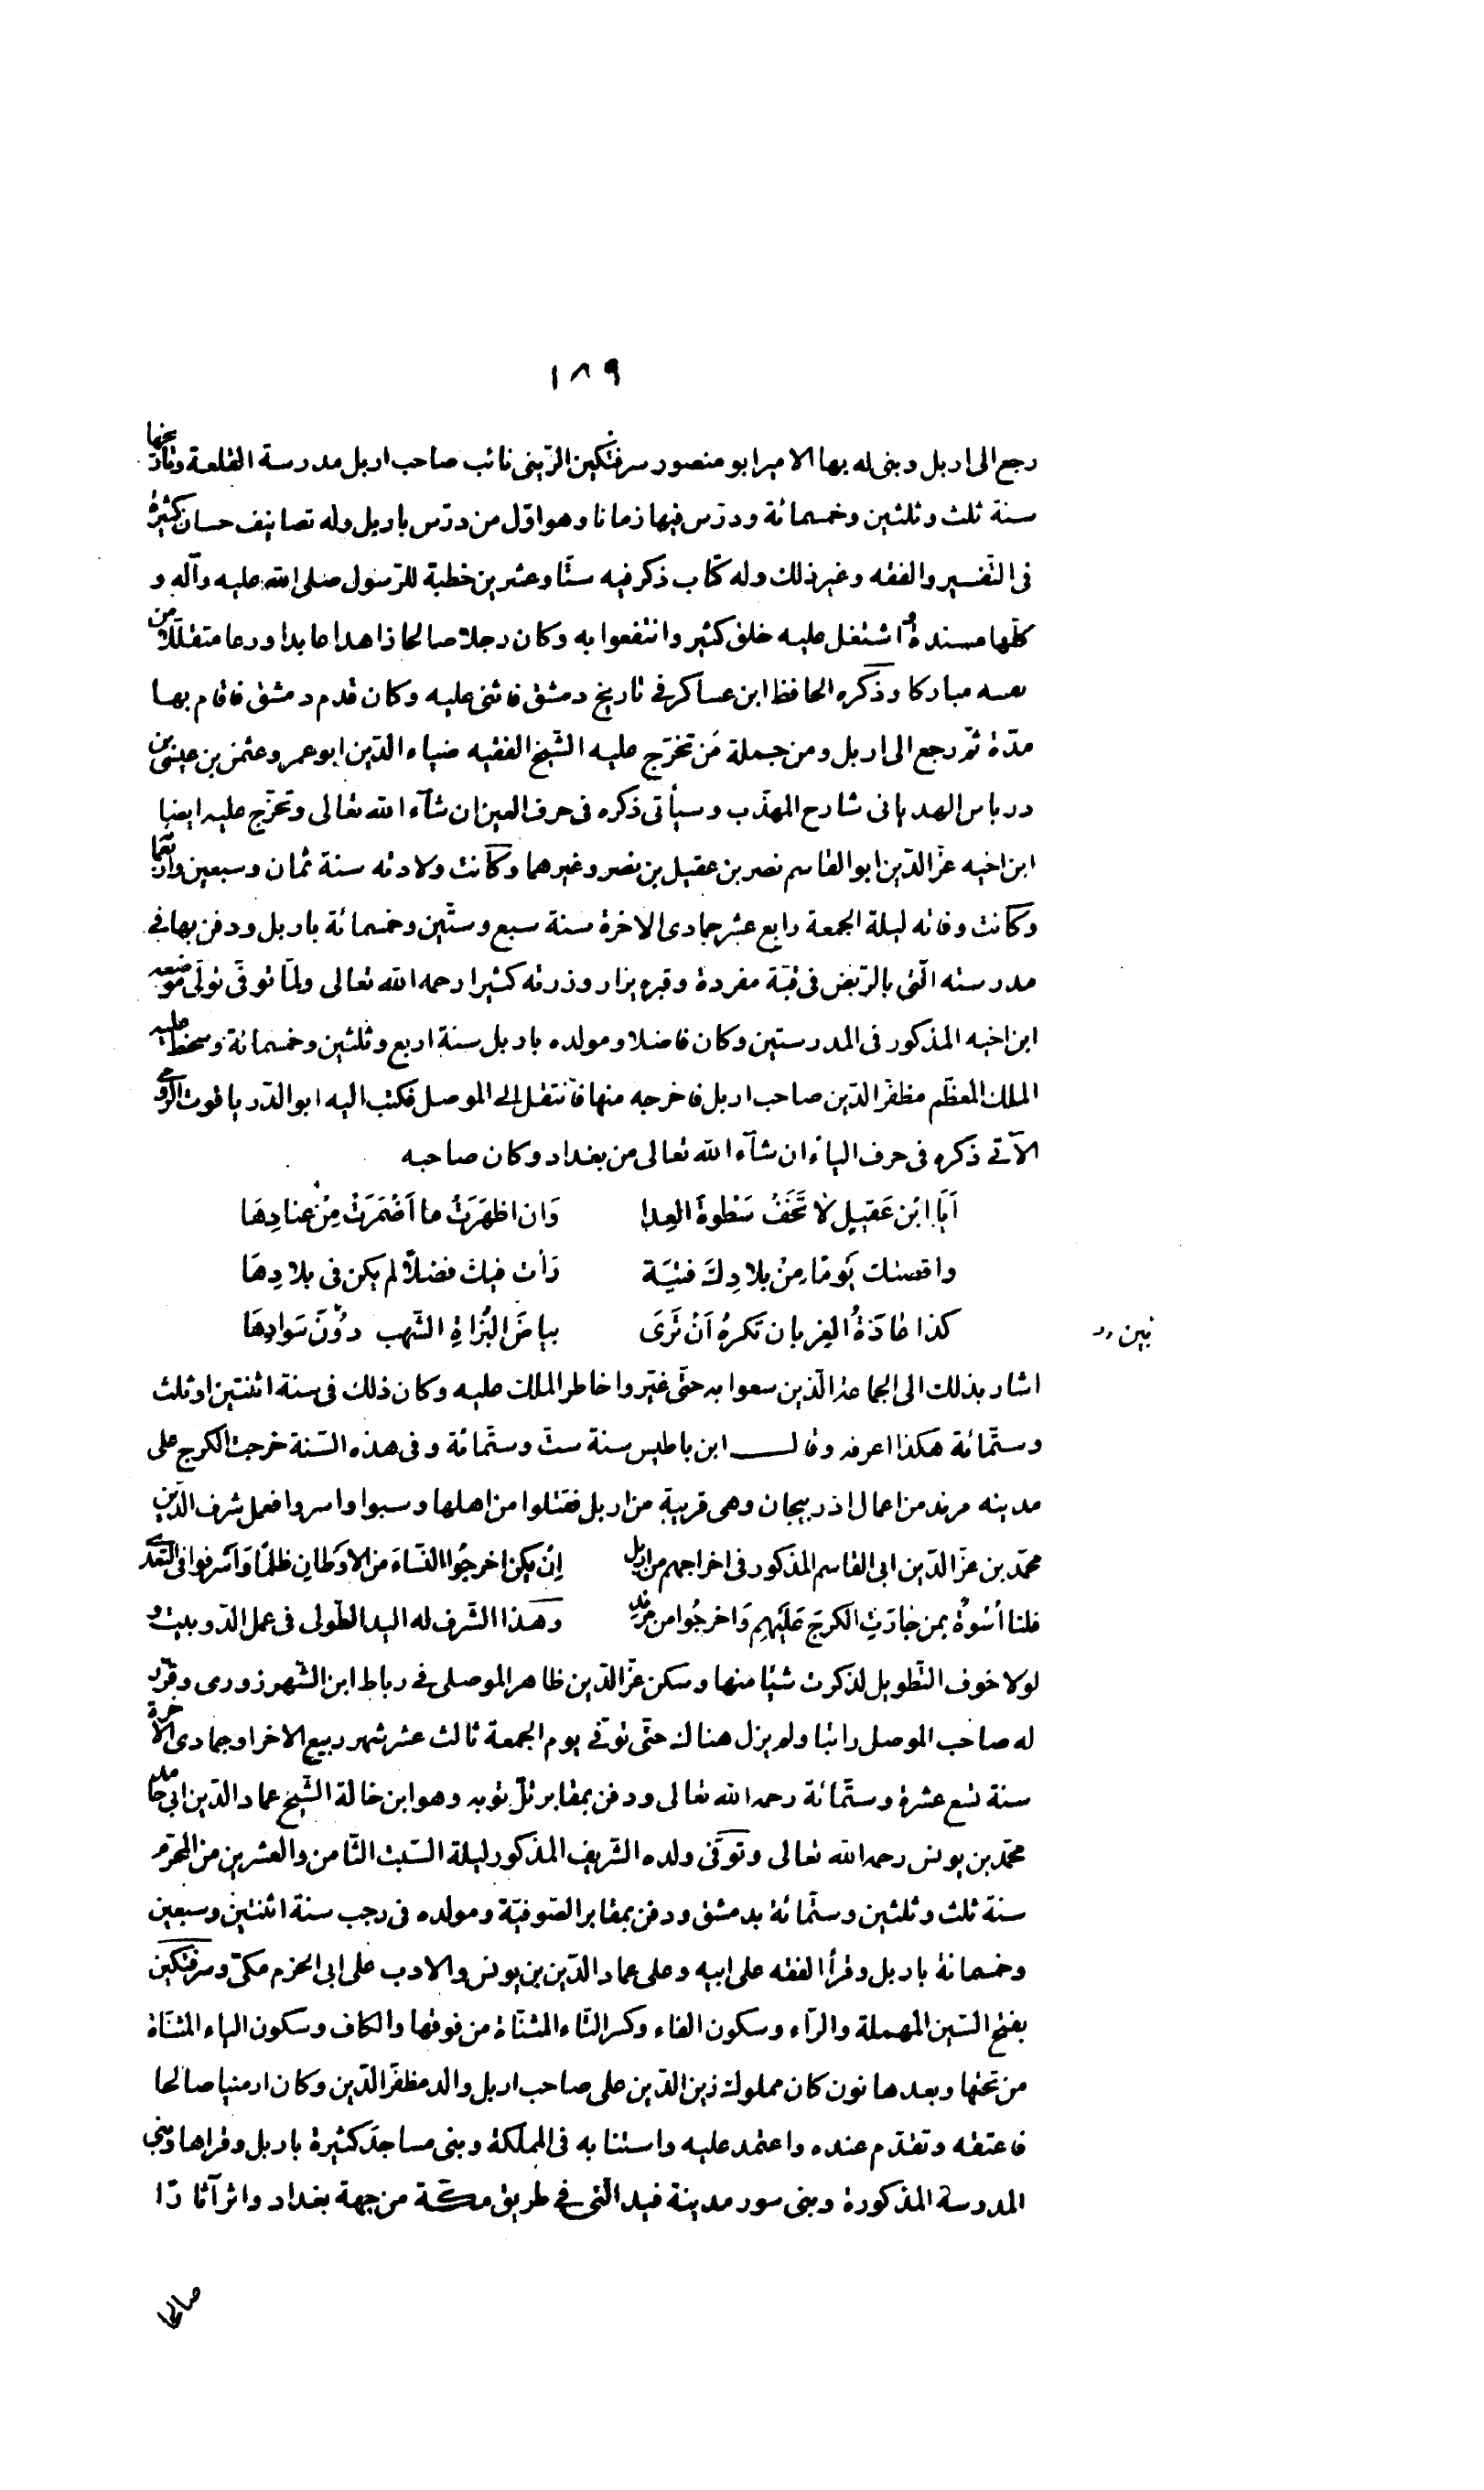 ١٨٩
رجع الى اربل وبنى له بها الامير ابو منصور سرفتكين الزينى نائب صاحب اربل مدرسة القلعة وتاريخها
سنة ثلث وثلثين وخمسمائة ودرّس فيها زمانا وهو اوّل من درّس باربل وله تصانيف حسان كثيرة
فى التّفسير والفقه وغير ذلك وله كتاب ذكر فيه ستّا وعشرين خطبة للرّسول صلى الله عليه وآله و
كلّها مسندة واشتغل عليه خلق كثير وانتفعوا به وكان رجلا صالحا زاهدا عابدا ورعا متقلّلا من
مباركا وذكره الحافظ ابن عساكر فى تاريخ دمشق فاثنى عليه وكان قدم دمشق فاقام بها
مدّة ثمّ رجع الى اربل ومن جملة من تخرّج عليه الشّيخ الفقيه ضياء الدّين ابو عمرو عثمن بن عيسى بن
درباس الهدبانى شارح المهذّب وسيأتى ذكره فى حرف العين ان شآء الله تعالى وتخرّج عليه ايضا
ابن اخيه عزّ الدّين ابو القاسم نصر بن عقيل بن نصر وغيرهما وكانت ولادته سنة ثمان وسبعين واربعمائة
وكانت وفاته ليلة الجمعة رابع عشر جمادى الاخرة سنة سبع وستّين وخمسمائة باربل ودفن بها فى
مدرسته الّتى بالرّبض فى قبّة مفردة وقبره يزار وزرته كثيرا رحمه الله تعالى ولمّا توفّى تولّى موضعه
ابن اخيه المذكور فى المدرستين وكان فاضلا ومولده باربل سنة اربع وثلثين وخمسمائة وسخط عليه
الملك المعظّم مظفّر الدّين صاحب اربل فاخرجه منها فانتقل الى الموصل فكتب اليه ابو الدّر ياقوت الرّومى
الآتى ذكره فى حرف الياء ان شآء الله تعالى من بغداد وكان صاحبه
اَيَا ابْن عَقيلٍ لا تَخَفْ سَطْوةَ العِدا وَان اظهَرَتْ ما اَضْمَرَتْ مِنْ عنادِهَا
واقصتك يَومًا مِنْ بلادِكَ فتيَة رَأت فيك فضلاً لم يكن فى بلادِهَا
كذا عادَةُ الغِربان تَكرهُ اَنْ تَرَى بياضَ البُزاةِ الشّهب دوُنَ سَوادِهَا
اشار بذلك الى الجماعة الّذين سعوا به حتّى غيّروا خاطر الملك عليه وكان ذلك فى سنة اثنتين او ثلث
وستّمائة هكذا اعرفه وقال ابن باطيس سنة ستّ وستّمائة وفى هذه السّنة خرجت الكرج على
مدينه مرند من اعمال اذربيجان وهى قريبة من اربل فقتلوا من اهلها وسبوا واسروا فعمل شرف الدّين
محمّد بن عزّ الدّين ابى القاسم المذكور فى اخراجهم من اربل اِنْ يكن اخرجُوا النّساءَ من الاوَطانِ ظلمًا وَاَسْرفوا فى التّعدّى
فلنا اُسْوةٌ بمن جارَتِ الكرجَ عَلَيهِم وَاخرجُوا من مَرَند وهذا الشّرف له اليد الطّولى فى عمل الدّوبيت و
لولا خوف التّطويل لذكرت شيئا منها وسكن عزّ الدّين ظاهر الموصل فى رباط ابن الشّهرزورى وقرّر
له صاحب الموصل راتبا ولم يزل هناك حتّى توفّى يوم الجمعة ثالث عشر شهر ربيع الاخر او جمادى الآخرة
سنة تسع عشرة وستّمائة رحمه الله تعالى ودفن بمقابر تلّ توبه وهو ابن خالة الشّيخ عماد الدّين ابى حامد
محمّد بن يونس رحمه الله تعالى وتوفّى ولده الشّريف المذكور ليلة السّبت الثّامن والعشرين من المحرّم
سنة ثلث وثلثين وستّمائة بدمشق ودفن بمقابر الصّوفيّة ومولده فى رجب سنة اثنتين وسبعين
وخمسمائة باربل وقرأ الفقه على ابيه وعلى عماد الدّين بن يونس والادب على ابى الحزم مكىّ وسرفتكين
بفتح السّين المهملة والرّاء وسكون الفاء وكسر التّاء المثنّاة من فوقها والكاف وسكون الياء المثنّاة
من تحتها وبعدها نون كان مملوك زين الدّين على صاحب اربل والد مظفّر الدّين وكان ارمنيا صالحا
فاعتقه وتقدّم عنده واعتمد عليه واستنابه فى المملكة وبنى مساجد كثيرة باربل وقراها وبنى
المدرسة المذكورة وبنى سور مدينة فيد الّتى فى طريق مكّة من جهة بغداد واثر آثارًا
صالحا